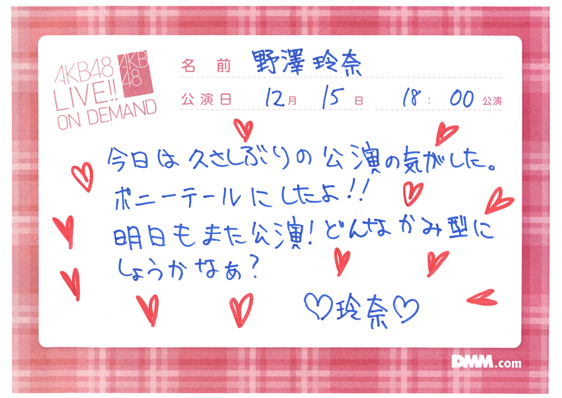 AKB48
LIVE!!
ON DEMAND
AKB
48
名前 野澤玲奈
公演日 12月 15日 18:00公演
今日は久さしぶりの公演の気がした。
ポニーテールにしたよ!!
明日もまた公演!どんなかみ型に
しょうかなぁ?
♡玲奈♡
DMM.com